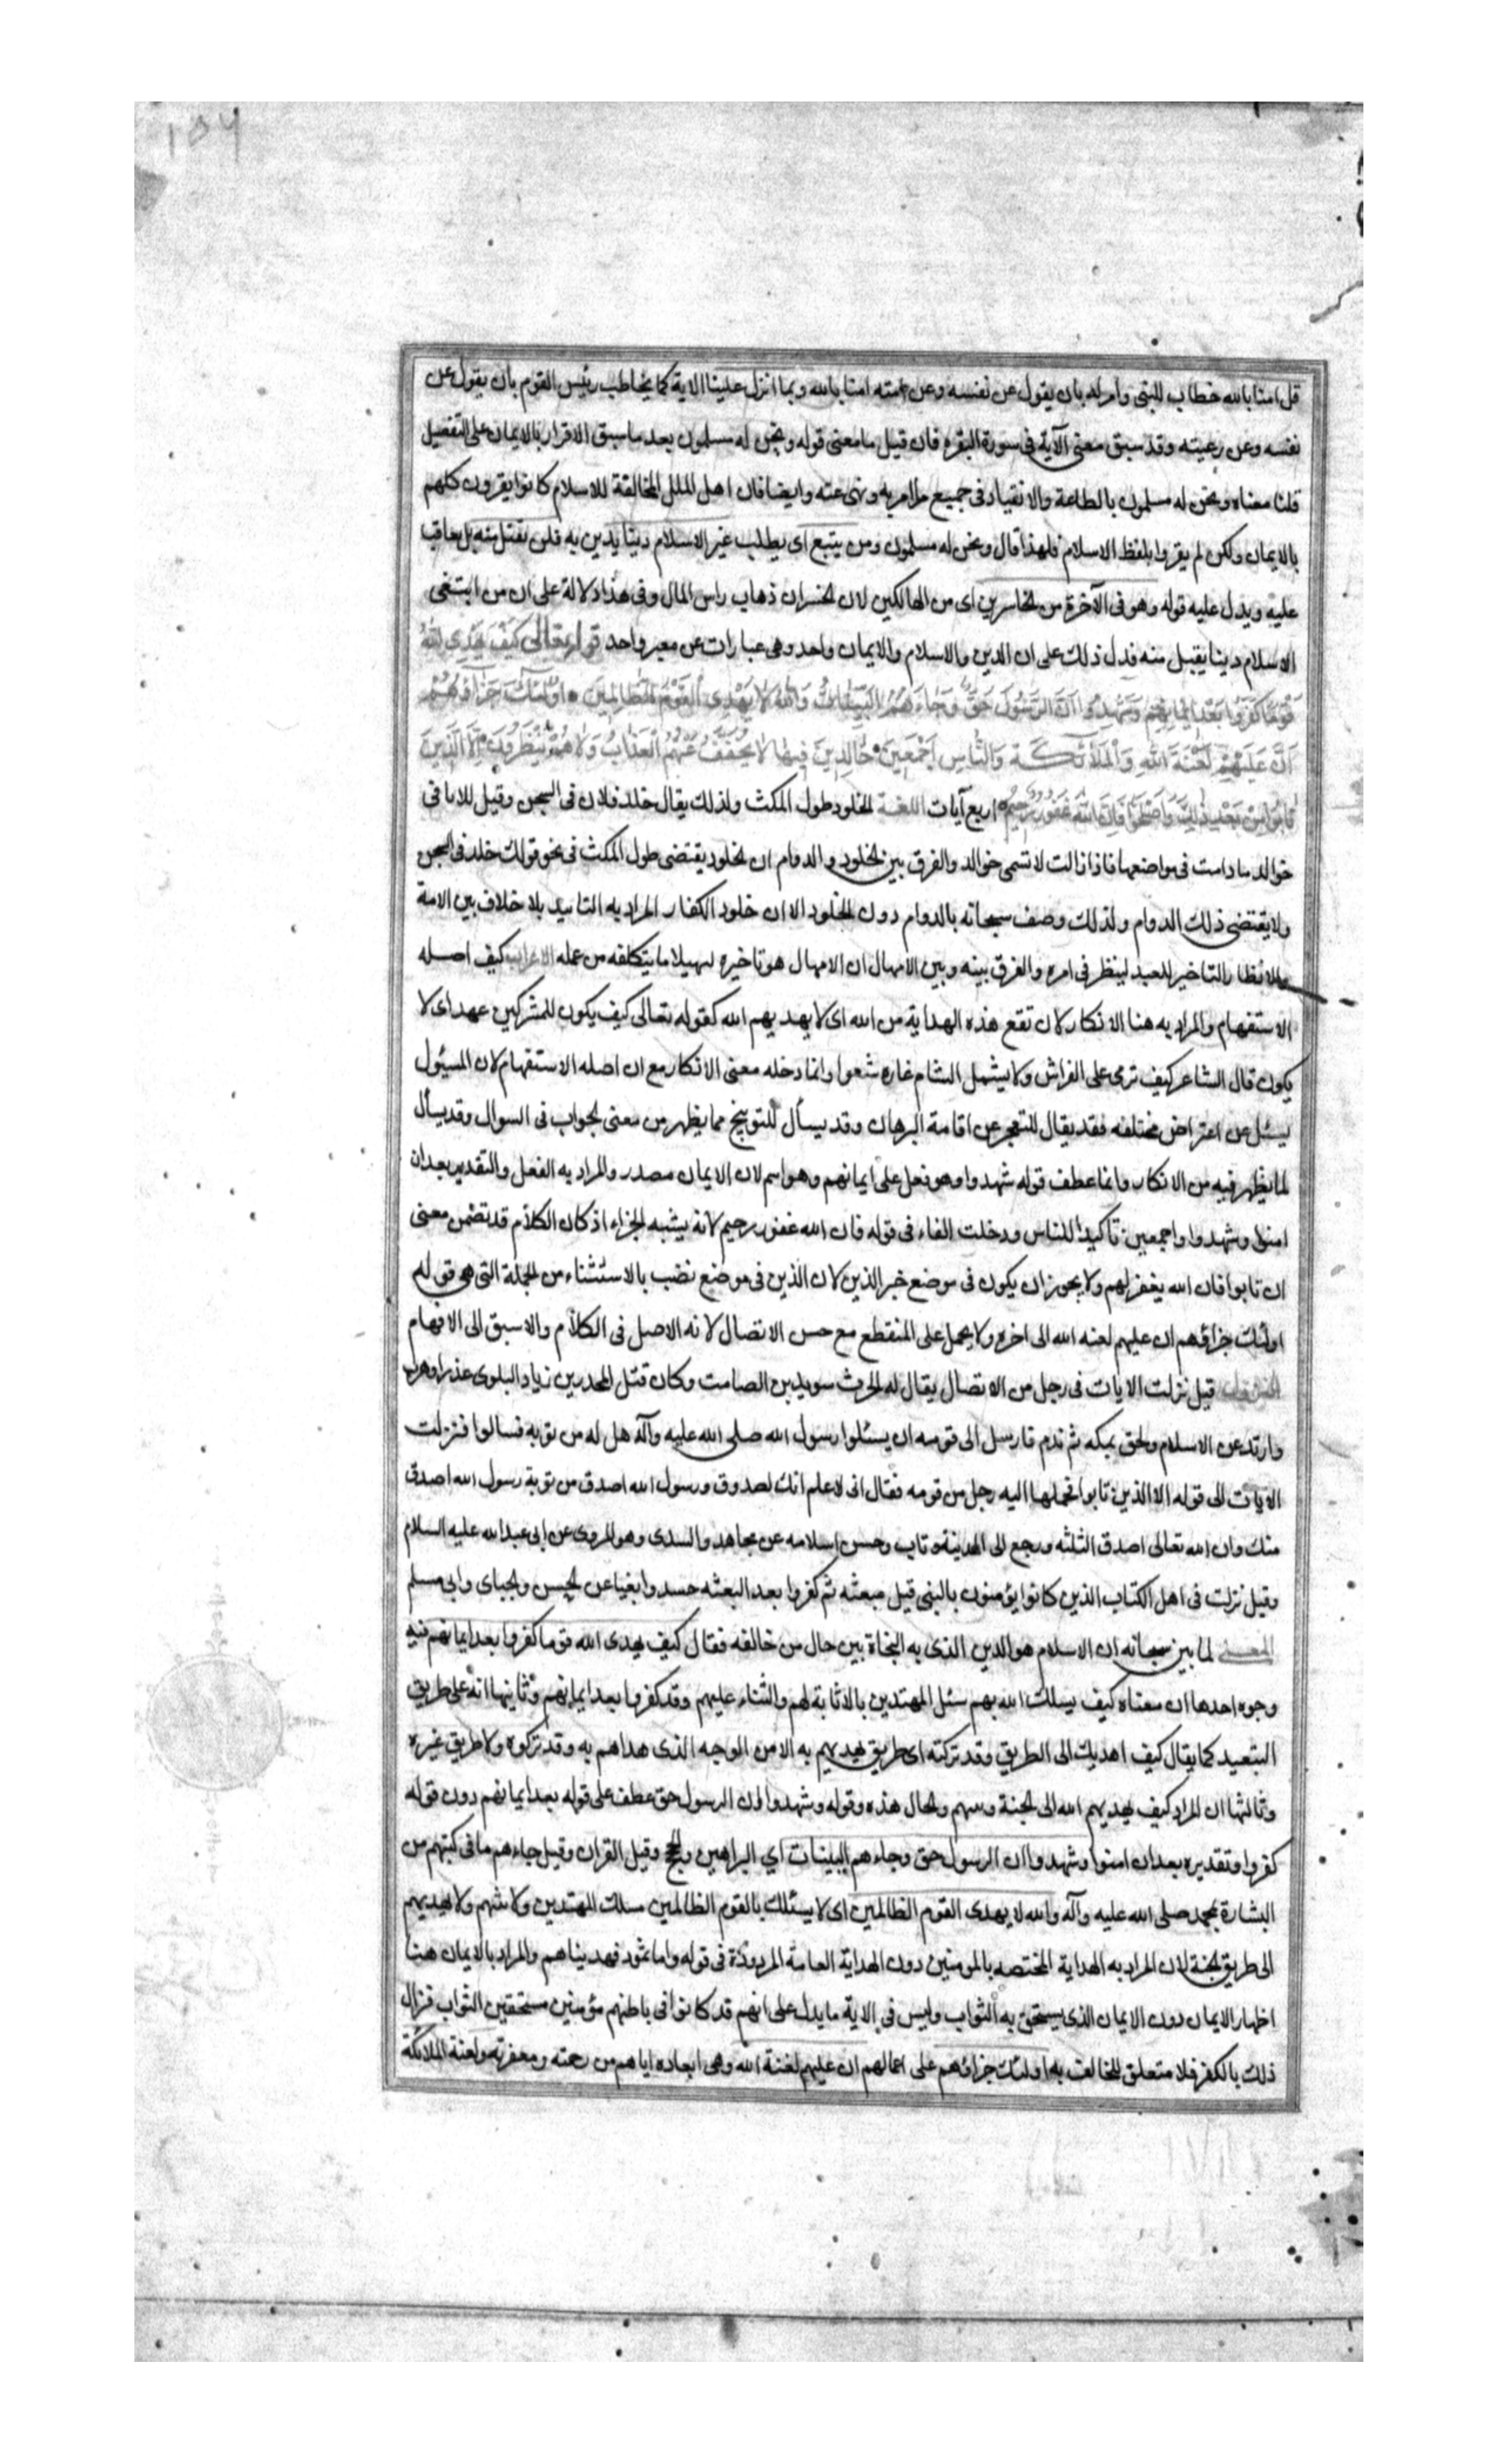 ۱۵۶
قل امنا بالله خطاب للنبى وامر له بان يقول عن نفسه وعن امته امنا بالله وبما انزل علينا الاية كما يخاطب رئيس القوم بان يقول عن
نفسه وعن رعيته وقد سبق معنى الآية فى سورة البقره فان قيل ما معنى قوله ونحن له مسلمون بعد ما سبق الاقرار بالايمان على التفصيل
قلنا معناه ونحن له مسلمون بالطاعة والانقياد فى جميع ما امر به ونهى عنه وايضا فان اهل الملل المخالفة للاسلام كانوا يقرون كلهم
بالايمان ولكن لم يقروا بلفظ الاسلام فلهذا قال ونحن له مسلمون ومن يبتع اى يطلب غير الاسلام دينا يدين به فلن تقبل منه بل يعاقب
عليه ويدل عليه قوله وهو فى الآخرة من الخاسرين اى من الهالكين لان الخسران ذهاب راس المال وفى هذا دلالة على ان من ابتغى
الاسلام دينا يقبل منه فدل ذلك على ان الدين والاسلام والايمان واحد وهى عبارات عن معبر واحد قوله تعالى كَيْفَ يَهْدِى اللهُ
قَوْمًا كَفَرُوا بَعْدَ اِيمَانِهِمْ وَشَهِدُوا اَنَّ الرَّسُولَ حَقٌّ وَجَاءَهُمُ الْبَيِّنَاتُ وَاللهُ لَا يَهْدِى الْقَوْمَ الظَّالِمِينَ اُولٰئِكَ جَزَاؤُهُمْ
اَنَّ عَلَيْهِمْ لَعْنَةَ اللهِ وَالْمَلَائِكَةِ وَالنَّاسِ اَجْمَعِينَ خَالِدِينَ فِيهَا لَا يُخَفَّفُ عَنْهُمُ الْعَذَابُ وَلَا هُمْ يُنْظَرُونَ اِلَّا الَّذِينَ
تَابُوا مِنْ بَعْدِ ذٰلِكَ وَاَصْلَحُوا فَاِنَّ اللهَ غَفُورٌ رَحِيمٌ اربع آيات اللغة الخلود طول المكث ولذلك يقال خلد فلان فى السجن وقيل للاثافى
خوالد ما دامت فى مواضعها فاذا زالت لا تسمى خوالد والفرق بين الخلود والدوام ان الخلود يقتضى طول المكث فى نحو قولك خلد فى السجن
ولا يقتضى ذلك الدوام ولذلك وصف سبحانه بالدوام دون الخلود الا ان خلود الكفار المراد به التابيد بلا خلاف بين الامة
والانظار التاخير للعبد لينظر فى امره والفرق بينه وبين الامهال ان الامهال هو تاخيره لتسهيل ما يتكلفه من عمله الاعراب كيف اصله
الاستفهام والمراد به هنا الانكار لان تقع هذه الهداية من الله اى لا يهديهم الله كقوله تعالى كيف يكون للمشركين عهد اى لا
يكون قال الشاعر كيف نومى على الفراش ولا يشمل الشام غاره شعوا وانما دخله معنى الانكار مع ان اصله الاستفهام لان المسئول
يسئل عن اغراض مختلفه فقد يقال للتعجيز عن اقامة البرهان وقد يسأل للتوبيخ مما يظهر من معنى الجواب فى السوال وقد يسأل
لما يظهر فيه من الانكار وانما عطف قوله شهدوا وهو فعل على ايمانهم وهو اسم لان الايمان مصدر والمراد به الفعل والتقدير بعد ان
امنوا وشهدوا واجمعين تأكيدا للناس ودخلت الفاء فى قوله فان الله غفور رحيم لانه يشبه الجزاء اذ كان الكلام قد تضمن معنى
ان تابوا فان الله يغفر لهم ولا يجوز ان يكون فى موضع خبر الذين لان الذين فى موضع نصب بالاستثناء من الجملة التى هى قوله
اولئك جزاؤهم ان عليهم لعنه الله الى اخره ولا يحمل على المنقطع مع حسن الاتصال لانه الاصل فى الكلام والاسبق الى الافهام
النزول قيل نزلت الايات فى رجل من الانصار يقال له الحرث سويد بن الصامت وكان قتل المحذر بن زياد البلوى غدرا وهرب
وارتد عن الاسلام ولحق بمكه ثم ندم فارسل الى قومه ان يسئلوا رسول الله صلى الله عليه وآله هل له من توبه فسالوا فنزلت
الايات الى قوله الا الذين تابوا فحملها اليه رجل من قومه فقال انى لاعلم انك لصدوق ورسول الله اصدق من توبة رسول الله اصدق
منك وان الله تعالى اصدق الثلثه ورجع الى المدينة وتاب وحسن اسلامه عن مجاهد والسدى وهو المروى عن ابى عبد الله عليه السلام
وقيل نزلت فى اهل الكتاب الذين كانوا يؤمنون بالنبى قبل مبعثه ثم كفروا بعد البعثه حسدا وبغيا عن الحسن والجباى وابى مسلم
المعنى لما بين سبحانه ان الاسلام هو الدين الذى به النجاة بين حال من خالفه فقال كيف يهدى الله قوما كفروا بعد ايمانهم فيه
وجوه احدها ان معناه كيف يسلك الله بهم سبل المهتدين بالاثابة لهم والثناء عليهم وقد كفروا بعد ايمانهم وثانيها انه على طريق
التبعيد كما يقال كيف اهديك الى الطريق وقد تركته اى طريق يهديهم به الا من الوجه الذى هداهم به وقد تركوه ولا طريق غيره
وثالثها ان المراد كيف يهديهم الله الى الجنة والحال هذه وقوله وشهدوا ان الرسول حق عطف على قوله بعد ايمانهم دون قوله
كفروا وتقديره بعد ان امنوا وشهدوا ان الرسول حق وجاءهم البينات اي البراهين والحجج وقيل القران وقيل جاءهم ما فى كتبهم من
البشارة بمحمد صلى الله عليه وآله والله لا يهدى القوم الظالمين اى لا يسلك بالقوم الظالمين مسلك المهتدين ولا يثيبهم ولا يهديهم
الى طريق الجنة لان المراد به الهداية المختصه بالمومنين دون الهداية العامة المرودة فى قوله واما ثمود فهديناهم والمراد بالايمان هنا
اظهار الايمان دون الايمان الذى يستحق به الثواب وليس فى الاية ما يدل على انهم قد كانوا فى باطنهم مؤمنين مستحقين الثواب فزال
ذلك بالكفر فلا متعلق للمخالف به اولئك جزاؤهم على اعمالهم ان عليهم لعنة الله وهى ابعاده اياهم من رحمته ومغفرته ولعنة الملائكة